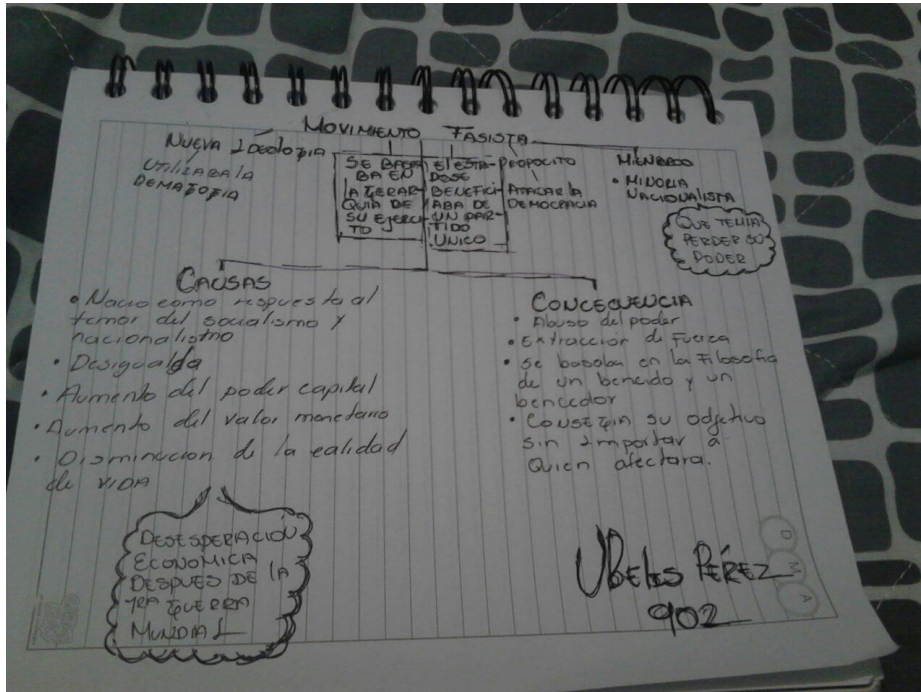 MOVIMIENTO FASISTA
NUEVA IDEOLOGIA
UTILIZABA LA
DEMAGOGIA
SE BASA
BA EN
LA GERAR-
QUIA DE
SU EJERCI
TO
El ESTA-
DOSE
BENEFICI-
ABA DE
UN PAR-
TIDO
UNICO
PROPOCITO
ATACAR la
DEMOCRACIA
MIENBRO
• MINORIA
NACIONALISTA
QUE TENIA
PERDER SU
PODER
CAUSAS
• Nacio como respuesta al
temor del socialismo y
nacionalismo
• Desigualda
• Aumento del poder capital
• Aumento del valor monetario
• Disminucion de la calidad
de VIDA
DESESPERACION
ECONOMICA
DESPUES DE LA
1RA GUERRA
MUNDIAL
CONCECUENCIA
• Abuso del poder
• Extracción de Fuerza
• Se basaba en la Filosofia
de un bencido y un
bencedor
• CONSEGUIA SU odjetivo
sin Importar a
Quien afectara.
UBelis PÉREZ
902
D
M
A